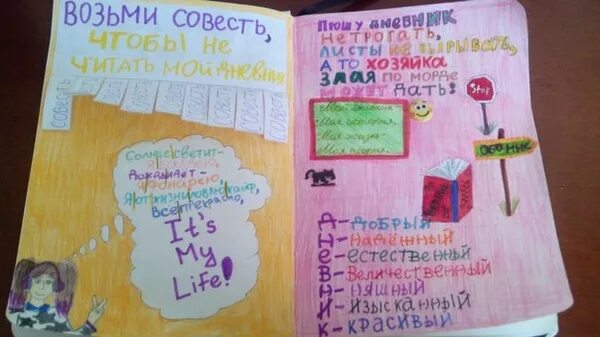 ВОЗЬМИ СОВЕСТЬ,
ЧТОБЫ НЕ
ЧИТАТЬ МОЙ ДНЕВНИК
СОВЕСТЬ СОВЕСТЬ СОВЕСТЬ СОВЕСТЬ СОВЕСТЬ СОВЕСТЬ СОВЕСТЬ СОВЕСТЬ
Солнце светит-
Дождь идет-
Я от жизни ловлю кайф,
Все прекрасно,
It's
My
Life!
Прошу дневник
не трогать,
листы не вырывать,
А то хозяйка
злая по морде
может дать!
Stop
Моя история,
Моя жизнь-
Обо мне
Д-добрый
Н-надежный
е-естественный
В-величественный
Н-няшный
И-изысканный
К-красивый